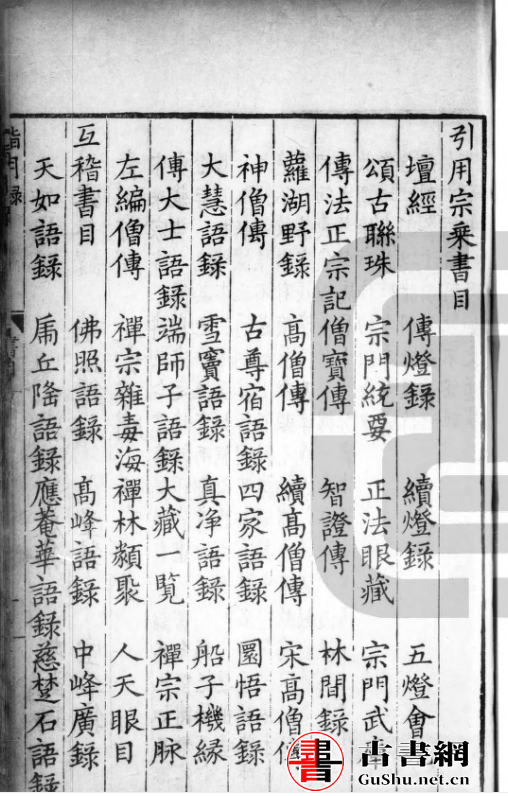 引用宗乘書目
壇經 傳燈錄 續燈錄 五燈會
頌古聯珠 宗門統要 正法眼藏 宗門武
傳法正宗記 僧寶傳 智證傳 林間錄
蘿湖野錄 高僧傳 續高僧傳 宋高僧傳
神僧傳 古尊宿語錄 四家語錄 圜悟語錄
大慧語錄 雪竇語錄 真淨語錄 船子機緣
傳大士語錄 端師子語錄 大藏一覽 禪宗正脉
左編僧傳 禪宗雜毒海 禪林類聚 人天眼目
互稽書目 佛照語錄 高峰語錄 中峰廣錄
天如語錄 虎丘隆語錄 應菴華語錄 慈楚石語錄
指月錄
書
古書網
GuShu.net.cn